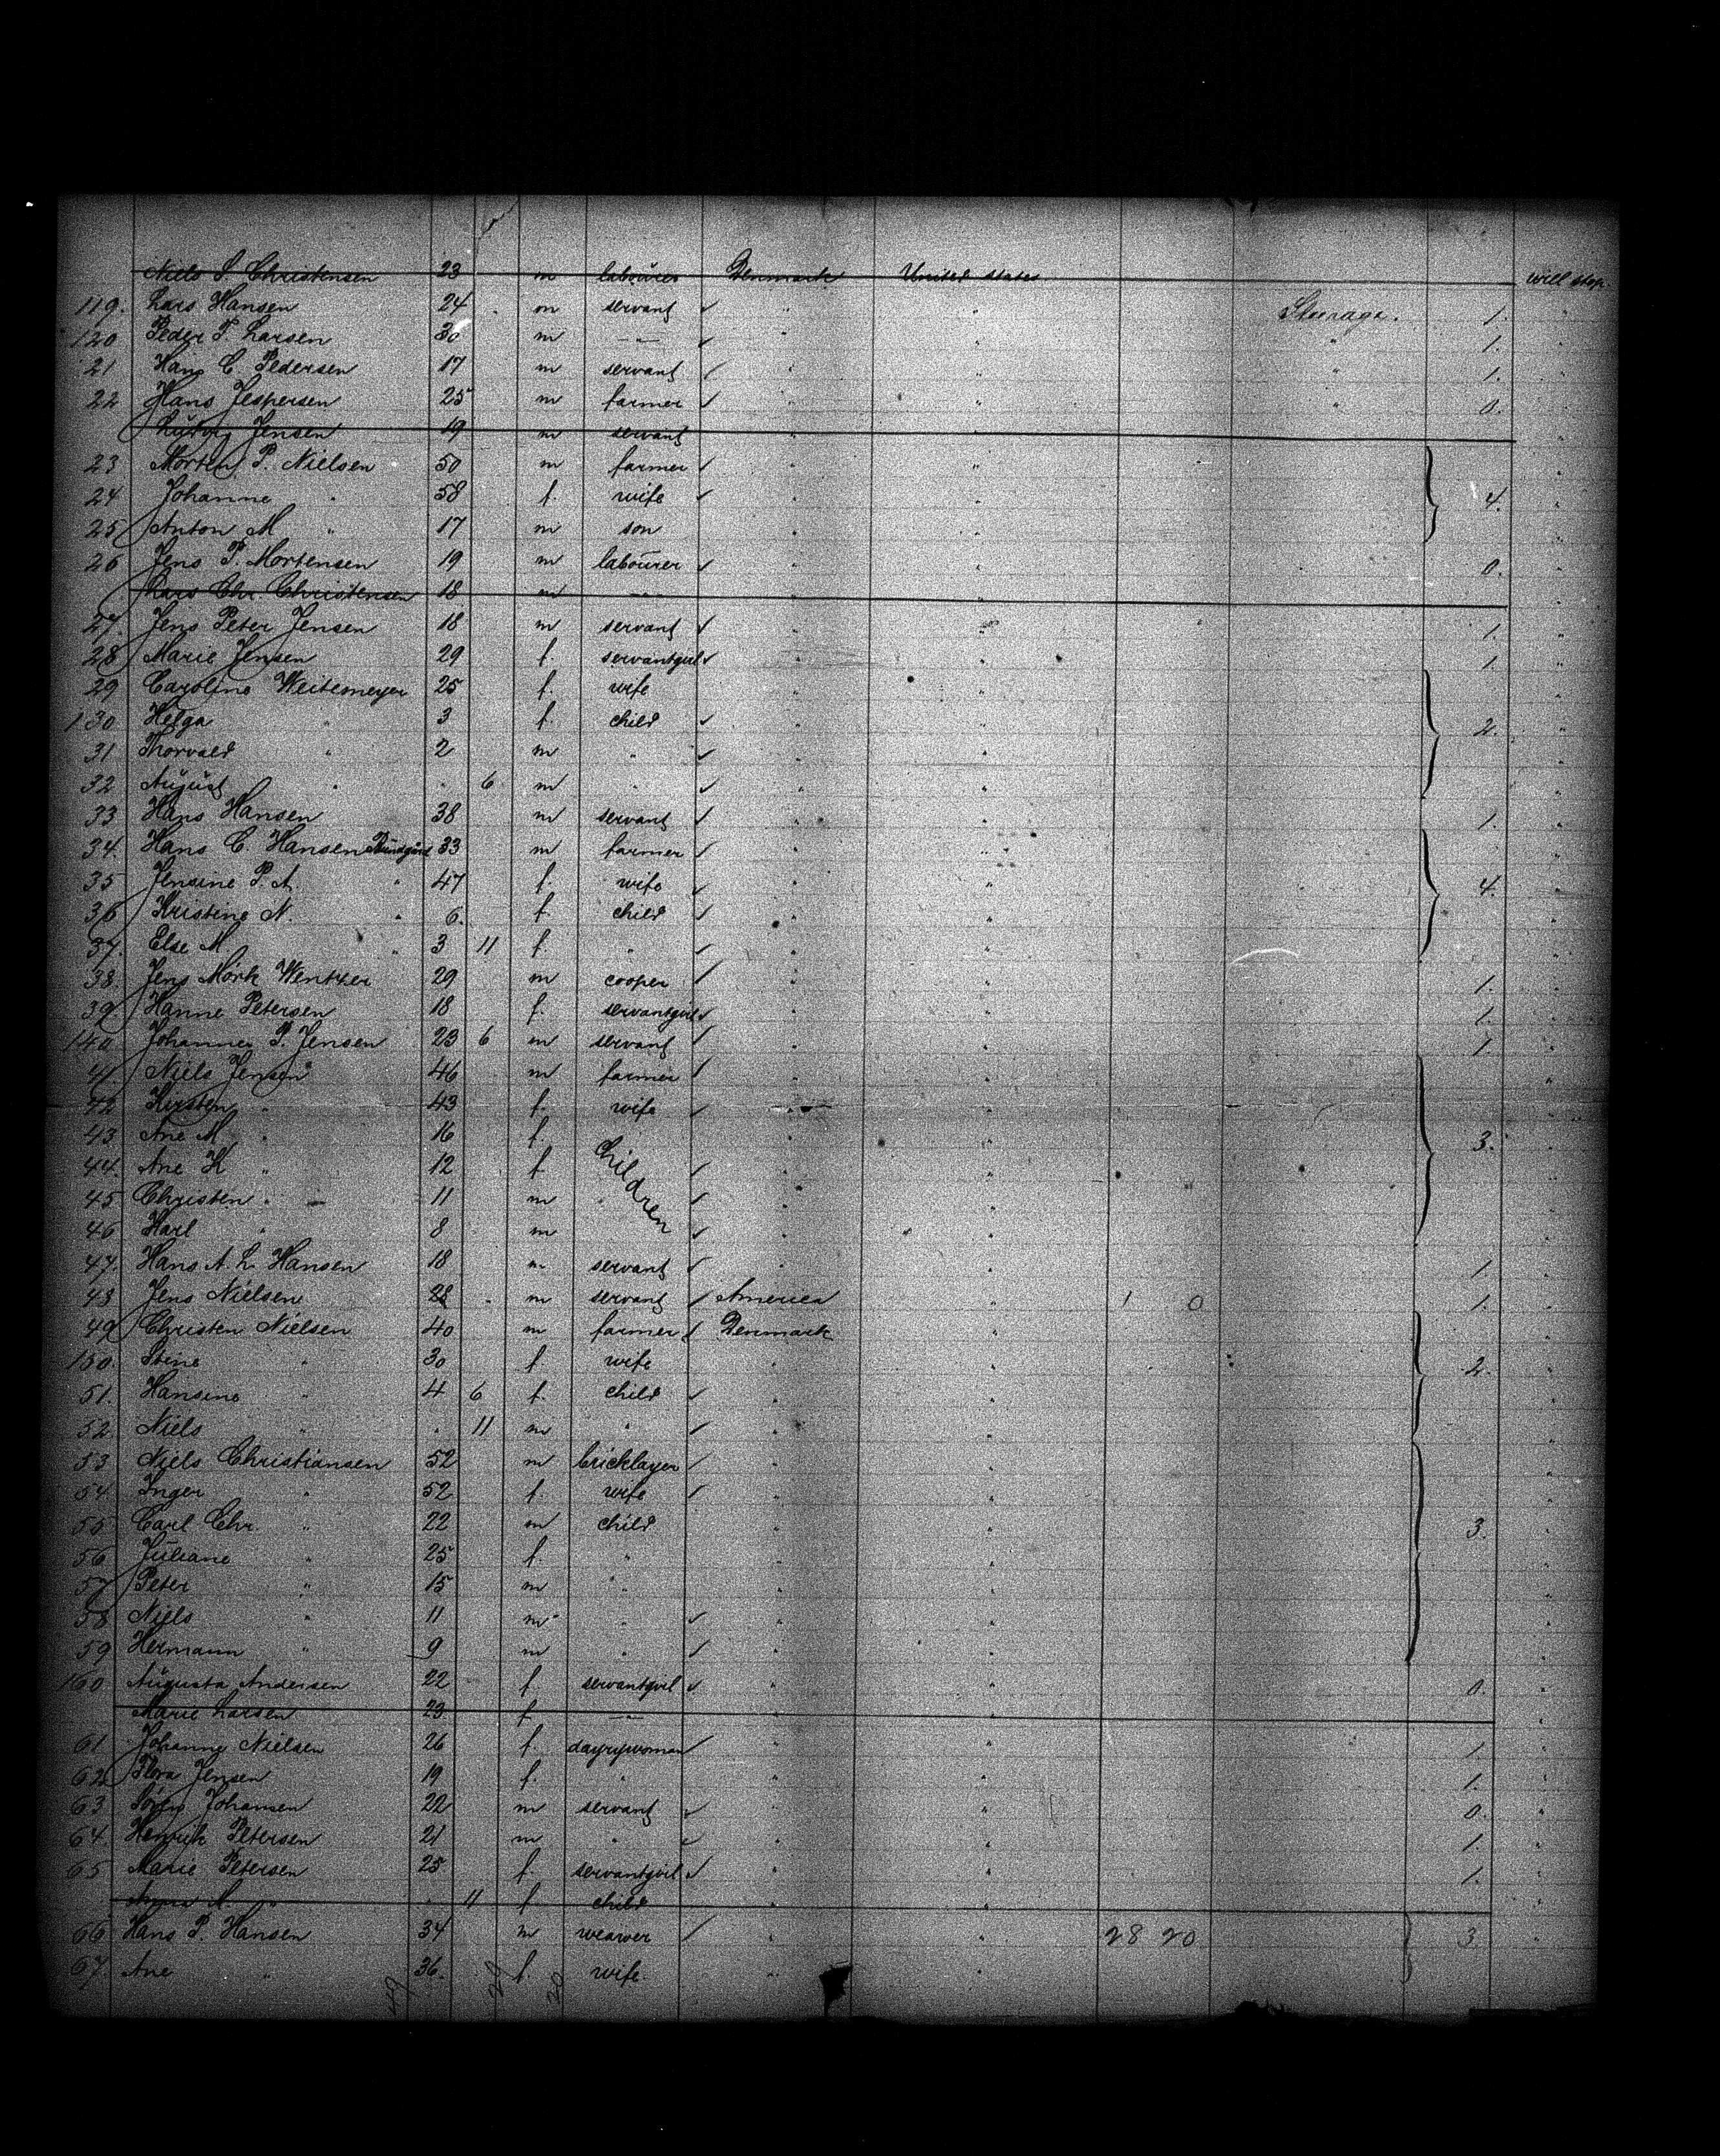 Niels S Christensen 23 m labourer Denmark United States will stop.
119. Lars Hansen 24 m servant " " Steerage. 1. "
120 Peder P. Larsen 30 m —"— " " " 1. "
21 Hans C. Pedersen 17 m servant " " " 1. "
22 Hans Jespersen 25 m farmer " " " 0. "
Jensen 19 m servant " "
23 Morten P. Nielsen 50 m farmer " " "
24 Johanne " 58 f. wife " " 4. "
25 Anton M " 17 m son " " "
26 Jens P. Mortensen 19 m labourer " " 0. "
Lars Chr. Christensen 18 m —"— " "
27. Jens Peter Jensen 18 m servant " " 1. "
28 Marie Jensen 29 f. servantgirl " " 1. "
29 Caroline Weitemeyer 25 f. wife " " "
130 Helga " 3 f. child " " 2. "
31 Thorvald " 2 m " " " "
32 August " . 6 m " " " "
33 Hans Hansen 38 m servant " " 1. "
34. Hans C. Hansen 33 m farmer " " "
35 Jensine P. A. " 47 f. wife " " 4. "
36 Kristine N. " 6. f. child " " "
37. Else M " 3 11 f. " " " "
38. Jens Mörk Wentzer 29 m cooper " " 1. "
39 Hanne Petersen 18 f. servantgirl " " 1. "
140 Johannes P. Jensen 23 6 m servant " " 1. "
41 Niels Jensen 46 m farmer " " "
42 Kirsten " 43 f. wife " " "
43 Ane M " 16 f. Children " " 3. "
44. Ane K " 12 f " " "
45 Christen " 11 m " " "
46 Karl " 8 m " " "
47. Hans A. L. Hansen 18 m servant " " 1. "
48 Jens Nielsen 28 m servant America " 1 0 1. "
49 Christen Nielsen 40 m farmer Denmark " "
150. Stine " 30 f. wife " " 2. "
51. Hansine " 4 6 f. child " " "
52. Niels " . 11 m " " " "
53 Niels Christiansen 52 m bricklayer " " "
54. Inger " 52 f. wife " " "
55 Carl Chr. " 22 m child " " 3. "
56 Juliane " 25 f. " " " "
57 Peter " 15 m " " " "
58 Niels " 11 m " " " "
59 Hermann " 9 m " " " "
160 Augusta Andersen 22 f. servantgirl " " 0. "
Marie Larsen 23 f —"— " "
61 Johanne Nielsen 26 f. dayrywoman " " 1. "
62 Flora Jensen 19 f. " " " 1. "
63 Sören Johansen 22 m servant " " 0. "
64 Henrik Petersen 21 m " " " 1. "
65 Marie Petersen 25 f. servantgirl " " 1. "
Anna M. " . 11 f. child " "
66 Hans P. Hansen 34 m weawer " " 28 20 3 "
67 Ane " 36. f wife. " "